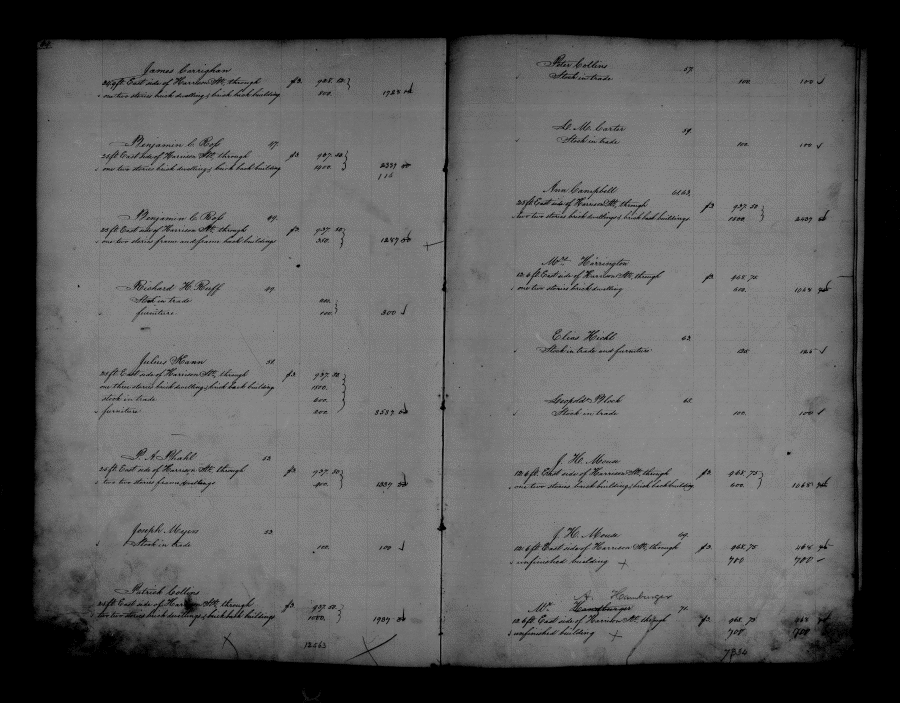 James Carrighan
East side of Harrison St., through f3. 988.12
one two stories brick dwelling & brick back building 800. 1788 12
Benjamin C. Ross 47.
25 ft. East side of Harrison St., through f3. 937.50
one two stories brick dwelling & brick back building 1400. 2337 50
Benjamin C. Ross 49.
25 ft. East side of Harrison St., through f3. 937.50
one two stories frame and frame back buildings 350. 1287 50
Richard H. Ruff 49.
Stock in trade 200.
furniture 100. 300
Julius Hann 51.
25 ft. East side of Harrison St., through f3. 937.50
one three stories brick dwelling & brick back building 1500.
stock in trade 600.
furniture 500. 3537 50
P. A. 53
25 ft. East side of Harrison St., through f3. 937.50
two two stories frame dwellings 400. 1337 50
Joseph Myers 53.
Stock in trade 100. 100
Patrick Collins
25 ft. East side of Harrison St., through f3. 937.50
two two stories brick dwellings & brick back buildings 1000. 1937 50
12563
Peter Collins 57.
Stock in trade 100. 100
M. Carter 59.
Stock in trade 100. 100
Ann Campbell 61.63.
25 ft. East side of Harrison St., through f3 937.50
two two stories brick dwellings & brick back buildings 1500. 2437 50
Mrs. Harrington
12.6 ft. East side of Harrison St., through f3 468.75
one two stories brick dwelling 600. 1068 75
Elias Hichl 63.
Stock in trade and furniture 125. 125
Leopold Block 65.
Stock in trade 100. 100
J. H. Mouse
12.6 ft. East side of Harrison St., through f3. 468.75
one two stories brick building & brick back building 600. 1068 75
J. H. Mouse 69.
12.6 ft. East side of Harrison St., through f3. 468.75 468 75
unfinished building 700 700
A. Hamburger
Mr. Hamburger 71.
12.6 ft. East side of Harrison St., through f3. 468.75 468 75
unfinished building 700 700
7334